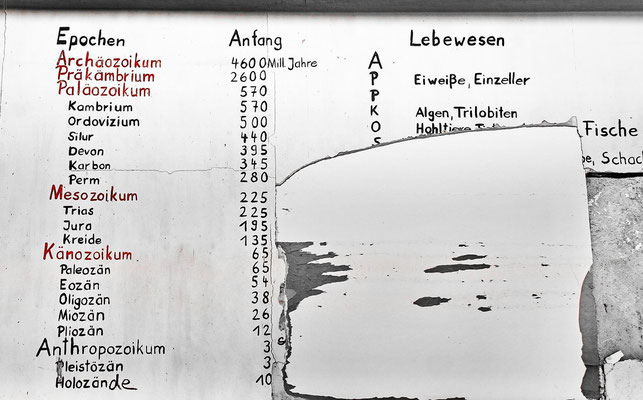 Epochen Anfang Lebewesen
Archäozoikum 4600 Mill. Jahre A
Präkämbrium 2600 P Eiweiße, Einzeller
Paläozoikum 570 P
Kambrium 570 K Algen, Trilobiten
Ordovizium 500 O Hohltiere Fische
Silur 440 S
Devon 395 Schac
Karbon 345
Perm 280
Mesozoikum 225
Trias 225
Jura 195
Kreide 135
Känozoikum 65
Paleozän 65
Eozän 54
Oligozän 38
Miozän 26
Pliozän 12
Anthropozoikum 3
Pleistözän 3
Holozände 10